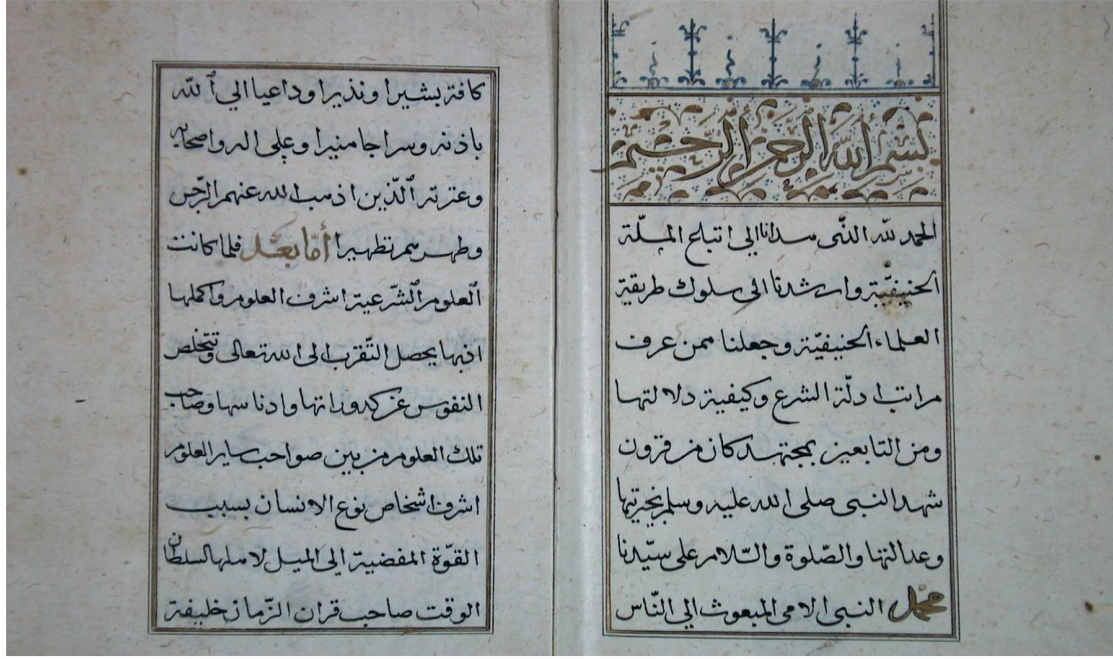 بسم الله الرحمن الرحيم
الحمد لله الذى هدانا الى اتباع الملّة
الحنيفيّة وارشدنا الى سلوك طريقة
العلماء الحنيفيّة وجعلنا ممن عرف
مراتب ادلّة الشرع وكيفية دلالتها
ومن التابعين بمجتهد كان من قرون
شهد النبى صلى الله عليه وسلم بخيريتها
وعدالتها والصّلوة والسّلام على سيّدنا
محمّد النبى الامى المبعوث الى النّاس
كافة بشيرا ونذيرا وداعيا الى الله
باذنه وسراجا منيرا وعلى اله واصحابه
وعترته الّذين اذهب الله عنهم الرّجس
وطهرهم تطهيرا أمّا بعد فلما كانت
العلوم الشّرعية اشرف العلوم واكملها
اذ بها يحصل التّقرب الى الله تعالى وتتخّلص
النفوس عن كدوراتها وادناسها وصاحب
تلك العلوم من بين صواحب ساير العلوم
اشرف اشخاص نوع الانسان بسبب
القوّة المفضية الى الميل لاهلها لسلطان
الوقت صاحب قران الزّمان خليفة